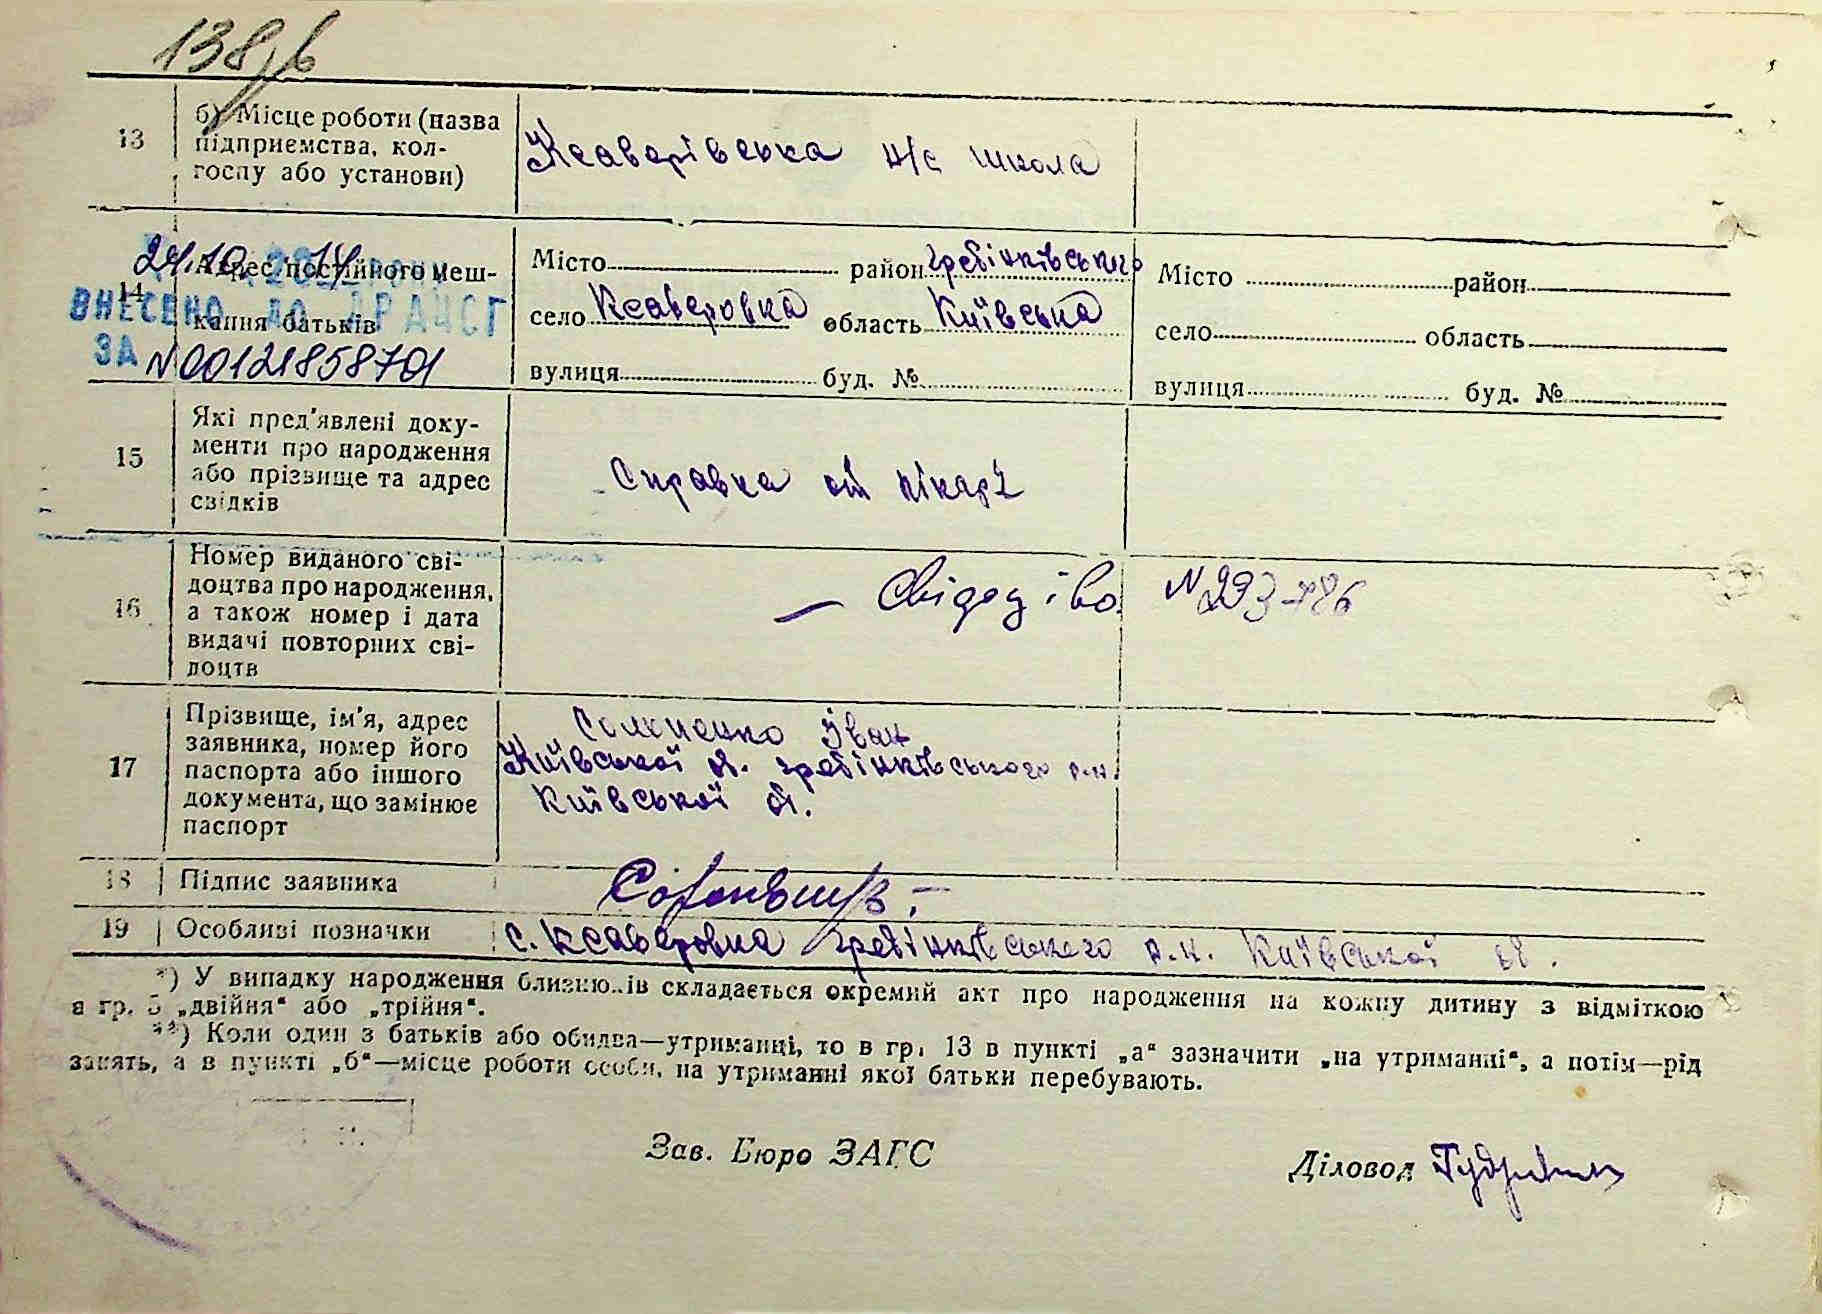 138/б
13
б) Місце роботи (назва
підприємства, кол-
госпу або установи)
Ксаверівська н/с школа
14
Адрес постійного меш-
кання батьків
24.10.2014
ВНЕСЕНО ДО ДРАЦСГ
ЗА N 00121858701
Місто район Гребінківського
село Ксаверовка область Київська
вулиця буд. №
Місто район
село область
вулиця буд. №
15
Які пред'явлені доку-
менти про народження
або прізвище та адрес
свідків
Справка от лікаря
16
Номер виданого сві-
доцтва про народження,
а також номер і дата
видачі повторних сві-
доцтв
N 293-786
17
Прізвище, ім'я, адрес
заявника, номер його
паспорта або іншого
документа, що замінює
паспорт
Іван
Київської Гребінківського р-н.
Київської
18 Підпис заявника
19 Особливі позначки
с. Ксаверовка Гребінківського р.н. Київської об.
*) У випадку народження близнюків складається окремий акт про народження на кожну дитину з відміткою
в гр. 5 „двійня“ або „трійня“.
**) Коли один з батьків або обидва—утриманці, то в гр. 13 в пункті „а“ зазначити „на утриманні“, а потім—рід
занять, а в пункті „б“—місце роботи особи, на утриманні якої батьки перебувають.
Зав. Бюро ЗАГС
Діловод